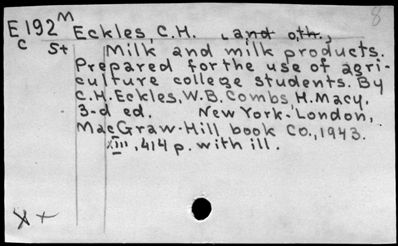 8
E192M Eckles, C.H. , and oth.,
c St Milk and milk products.
Prepared for the use of agri-
culture college students. By
C.H. Eckles, W.B. Combs, H. Macy.
3-d ed. New York-London,
MacGraw-Hill book Co., 1943.
XIII, 414 p. with ill.
X +